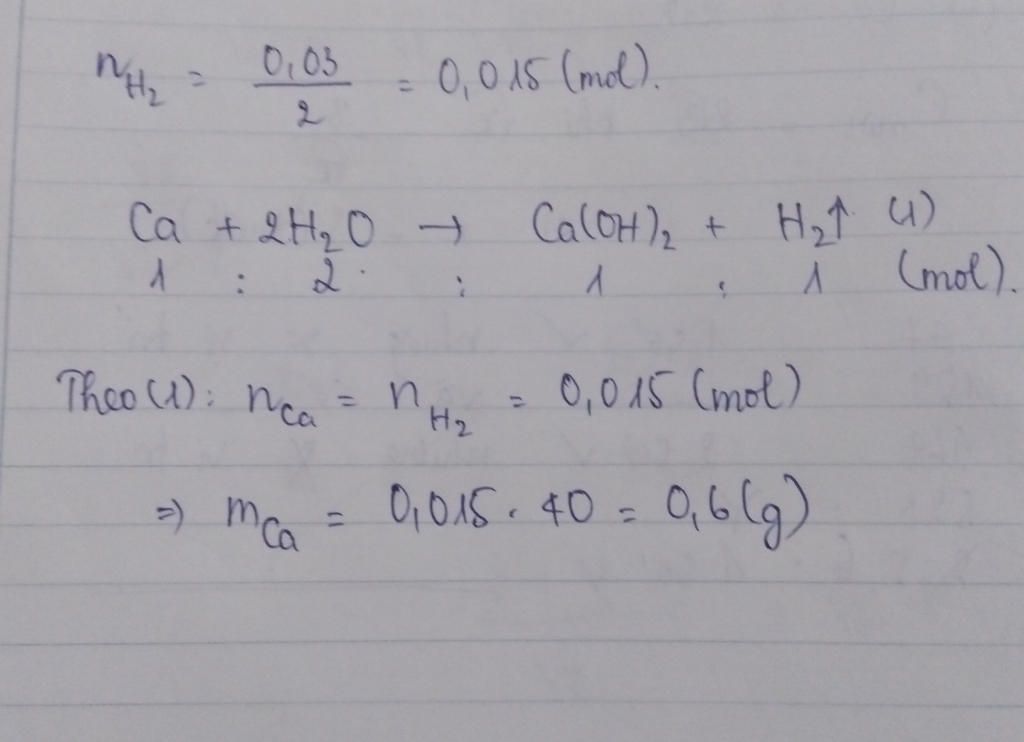 n_H₂ = 0,03/2 = 0,015 (mol).
Ca + 2H₂O → Ca(OH)₂ + H₂↑ (1)
1 : 2 : 1 : 1 (mol).
Theo (1): n_Ca = n_H₂ = 0,015 (mol)
=> m_Ca = 0,015 . 40 = 0,6 (g)